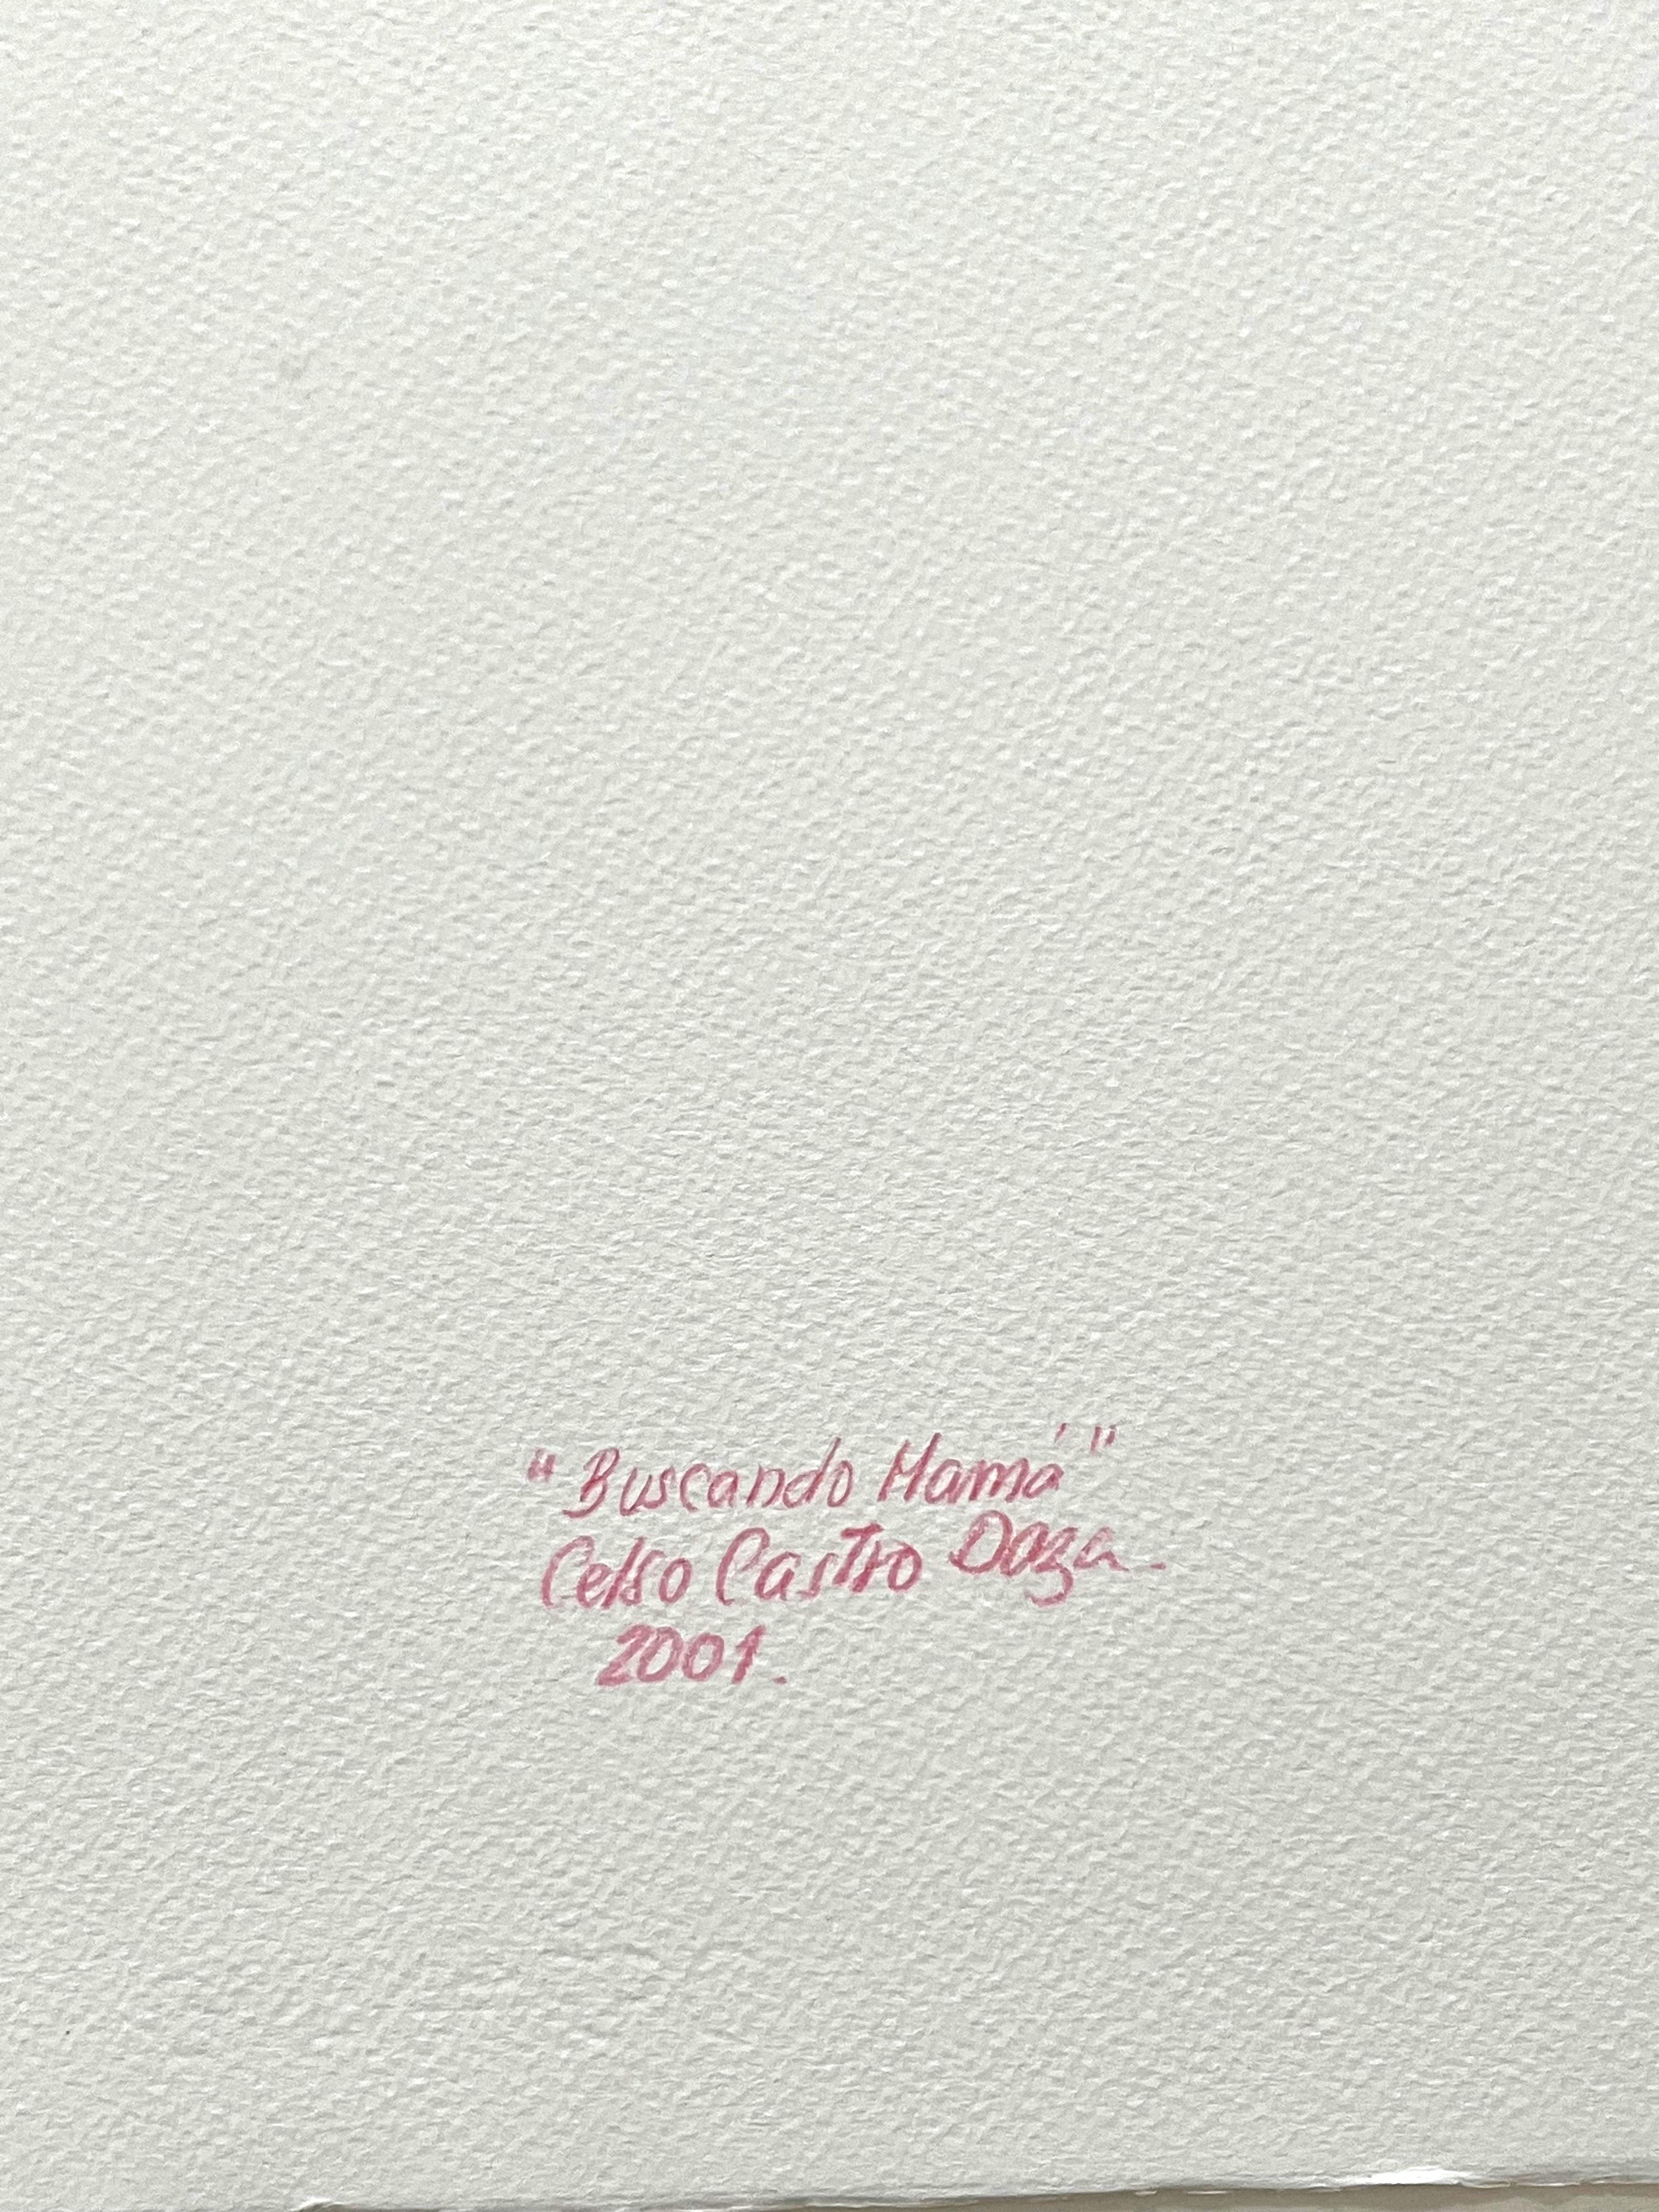 "Buscando Mamá"
Celso Castro Daza.
2001.